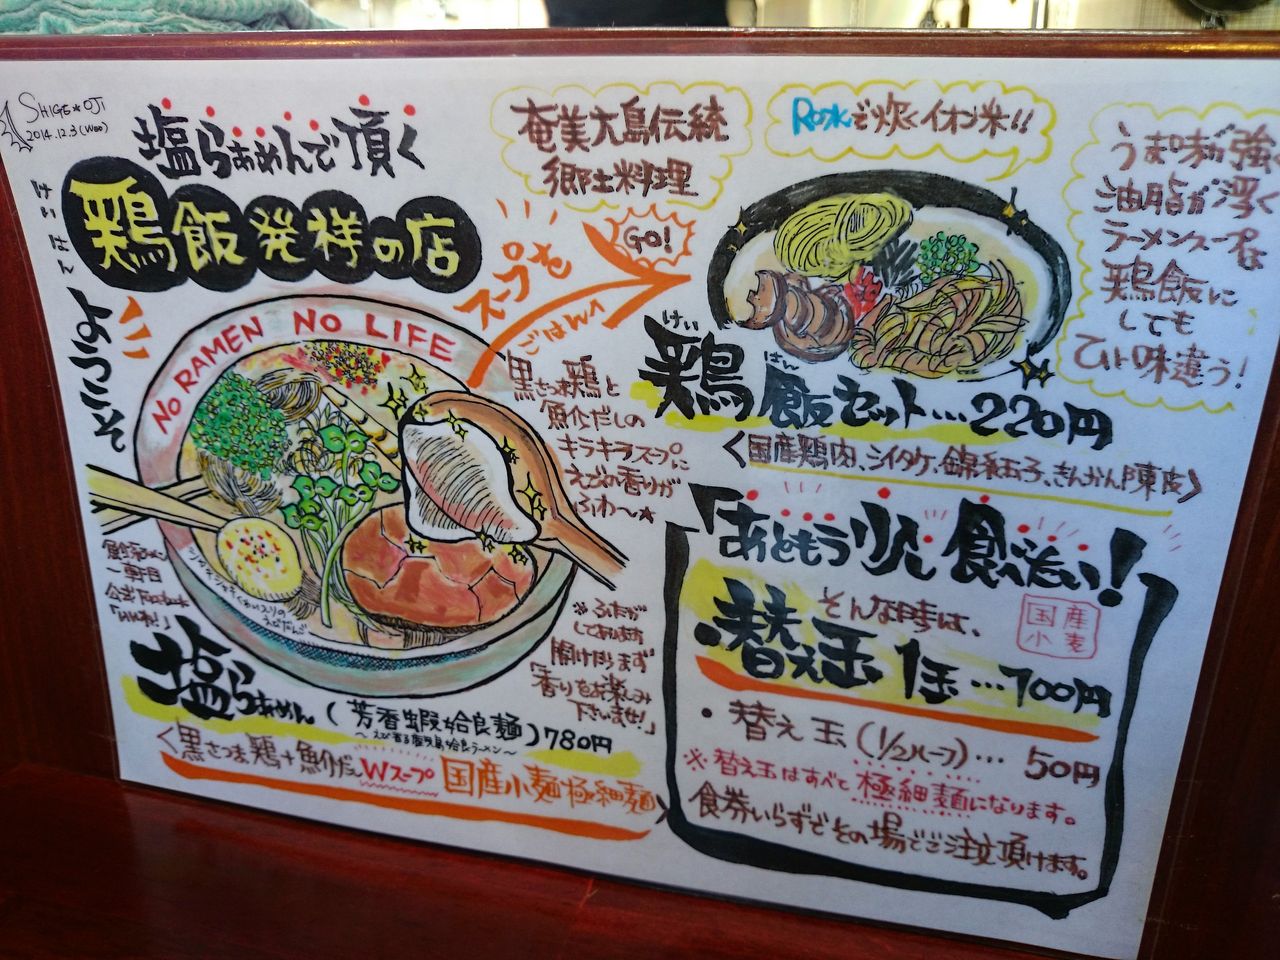 SHIGE★OJI
2014.12.3(Wed)
塩らぁめんで頂く
けいはん
鶏飯発祥の店
ようこそ
奄美大島伝統
郷土料理
RO水で炊くイオン米!!
うま味が強く
油脂が浮く
ラーメンスープは
鶏飯に
しても
ひと味違う!
スープを
ごはんへ
GO!
NO RAMEN NO LIFE
黒さつま鶏と
魚介だしの
キラキラスープに
えびの香りが
ふわ〜★
けい はん
鶏飯セット…220円
<国産鶏肉、シイタケ、錦糸玉子、きんかん、陳皮>
「あともう少し食べたい!」
そんな時は、
国産小麦
替え玉 1玉…100円
・替え玉(1/2ハーフ)… 50円
※替え玉はすべて極細麺になります。
食券いらずでその場でご注文頂けます。
一軒目
公式Facebook
※ふたが
してあります
開けたらまず
「香りをお楽しみ
下さいませ!」
塩らぁめん(芳香蝦姶良麺)780円
〜えび香る鹿児島姶良ラーメン〜
<黒さつま鶏+魚介だしWスープ 国産小麦極細麺>